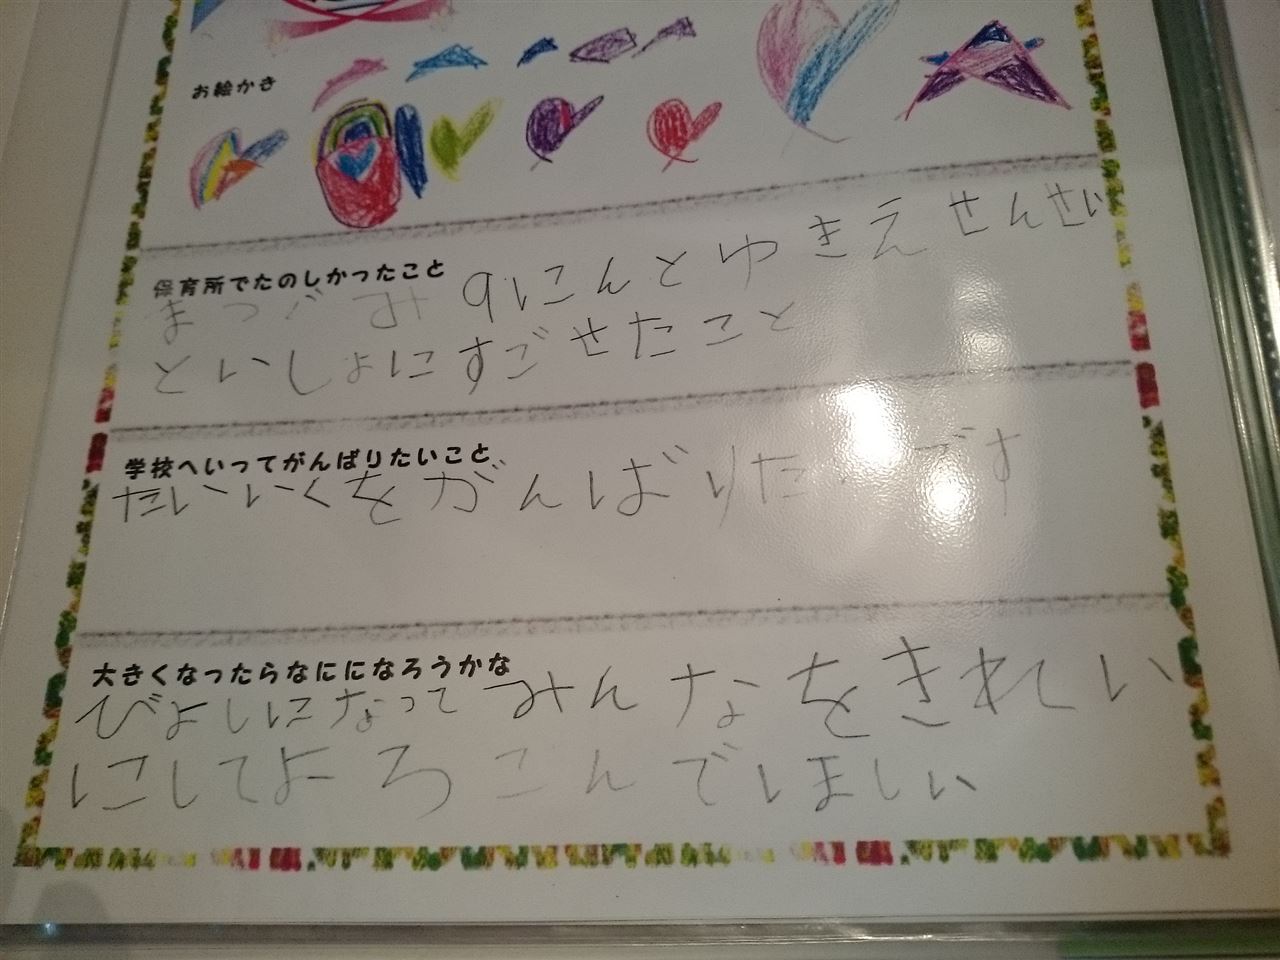 お絵かき
保育所でたのしかったこと
まつぐみ9にんとゆきえせんせい
といしょにすごせたこと
学校へいってがんばりたいこと
たいいくをがんばりたいです
大きくなったらなにになろうかな
びよしになってみんなをきれい
にしてよろこんでほしい